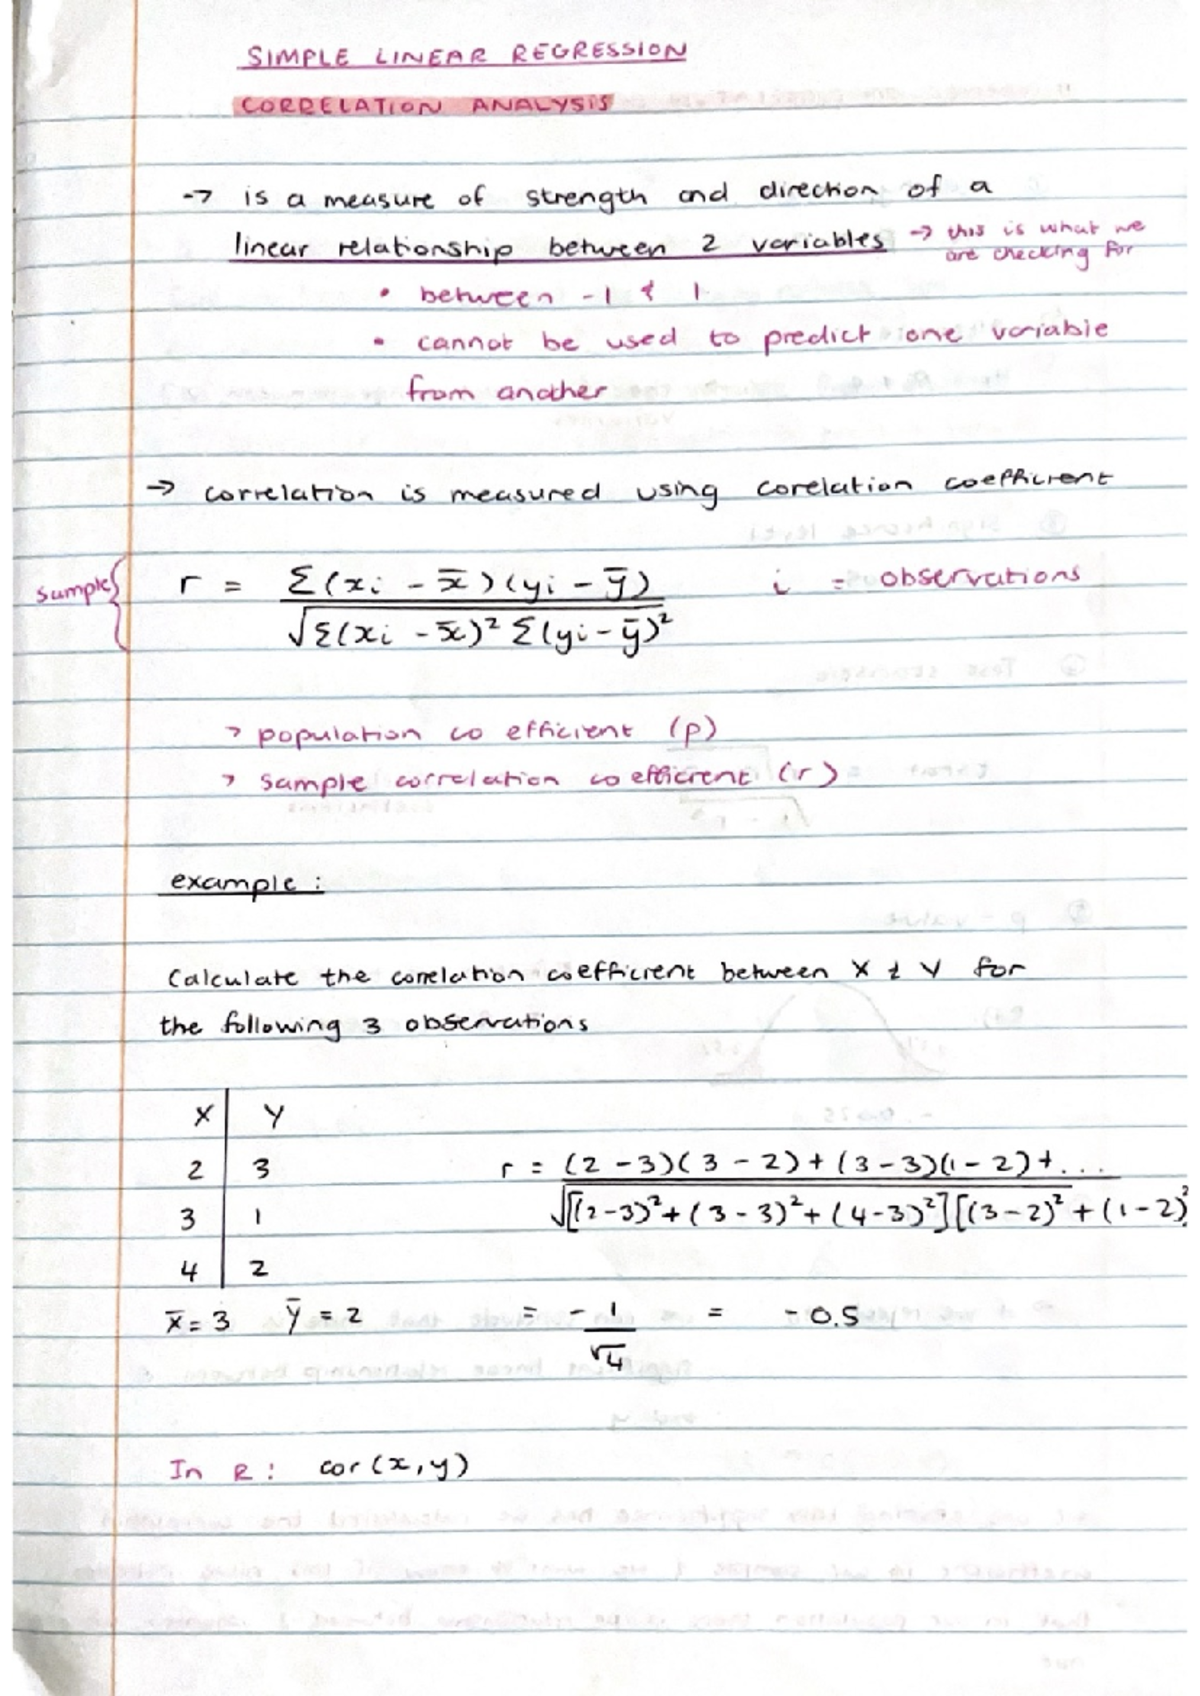 SIMPLE LINEAR REGRESSION
CORRELATION ANALYSIS
→ is a measure of strength and direction of a
linear relationship between 2 variables → this is what we
are checking for
• between -1 & 1
• cannot be used to predict one variable
from another
→ correlation is measured using corelation coefficient
sample { r = Σ(xi - x̄)(yi - ȳ) i = observations
√Σ(xi - x̄)² Σ(yi - ȳ)²
> population co efficient (p)
> sample correlation coefficient (r)
example :
Calculate the correlation coefficient between X & Y for
the following 3 observations
X Y
2 3 r = (2 - 3)(3 - 2) + (3 - 3)(1 - 2) + ...
3 1 √[(2-3)² + (3-3)² + (4-3)²][(3-2)² + (1-2)²
4 2
x̄ = 3 ȳ = 2 = - 1 = -0.5
√4
In R : cor(x,y)